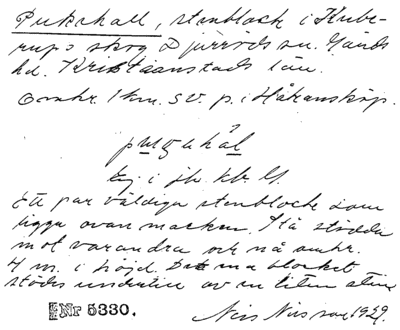 Pukahall, stenblock i Kube-
rups skog Djurröds sn. Gärds
hd. Kristianstads län.
Omkr. 1 km. SV. p. i Håkansköp.
Ej i jb. kbr. 
Ett par väldiga stenblock som
ligga ovan marken. Stå stödda
mot varandra och nå omkr.
4 m. i höjd. Detta ena blocket
stödes undertill av en liten sten
Nr 5330.
Nils Nilsson 1929.